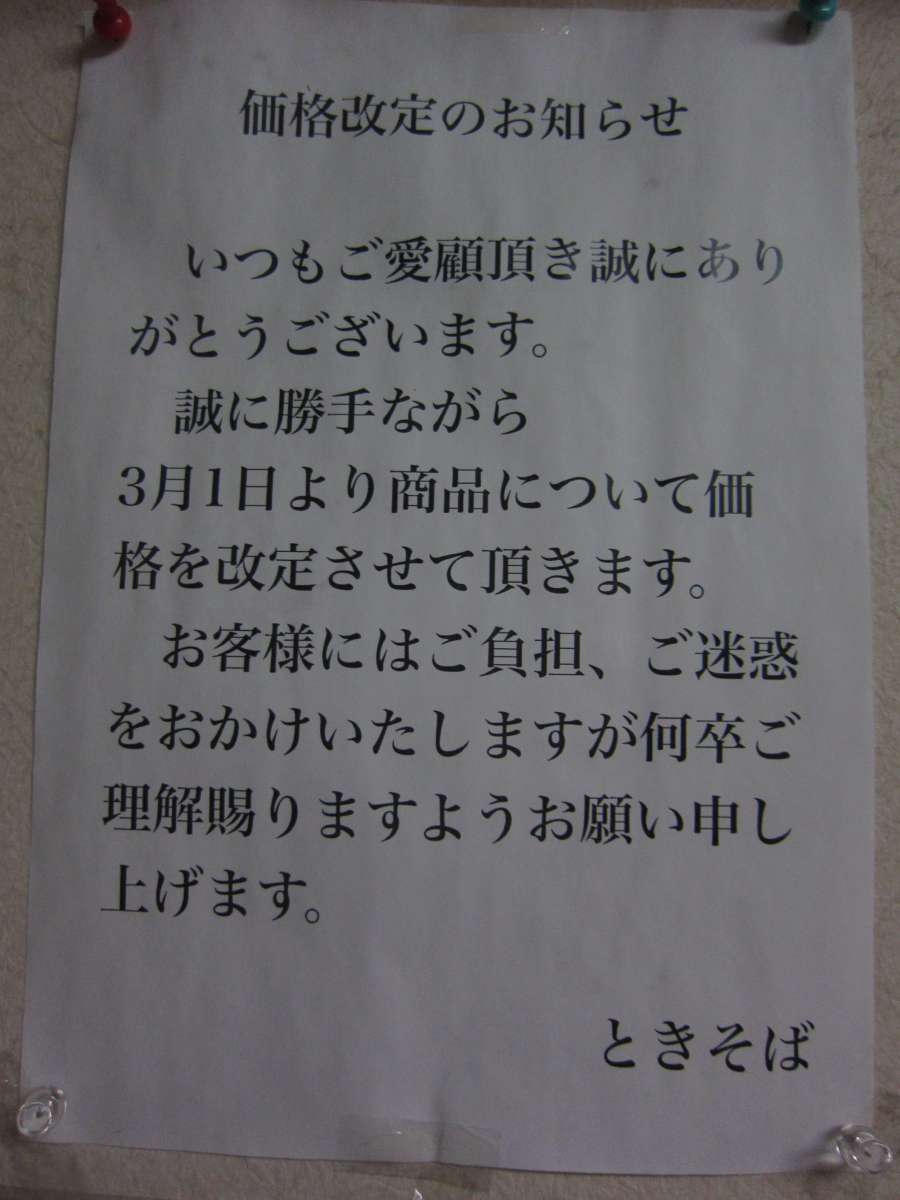 価格改定のお知らせ
いつもご愛顧頂き誠にあり
がとうございます。
誠に勝手ながら
3月1日より商品について価
格を改定させて頂きます。
お客様にはご負担、ご迷惑
をおかけいたしますが何卒ご
理解賜りますようお願い申し
上げます。
ときそば